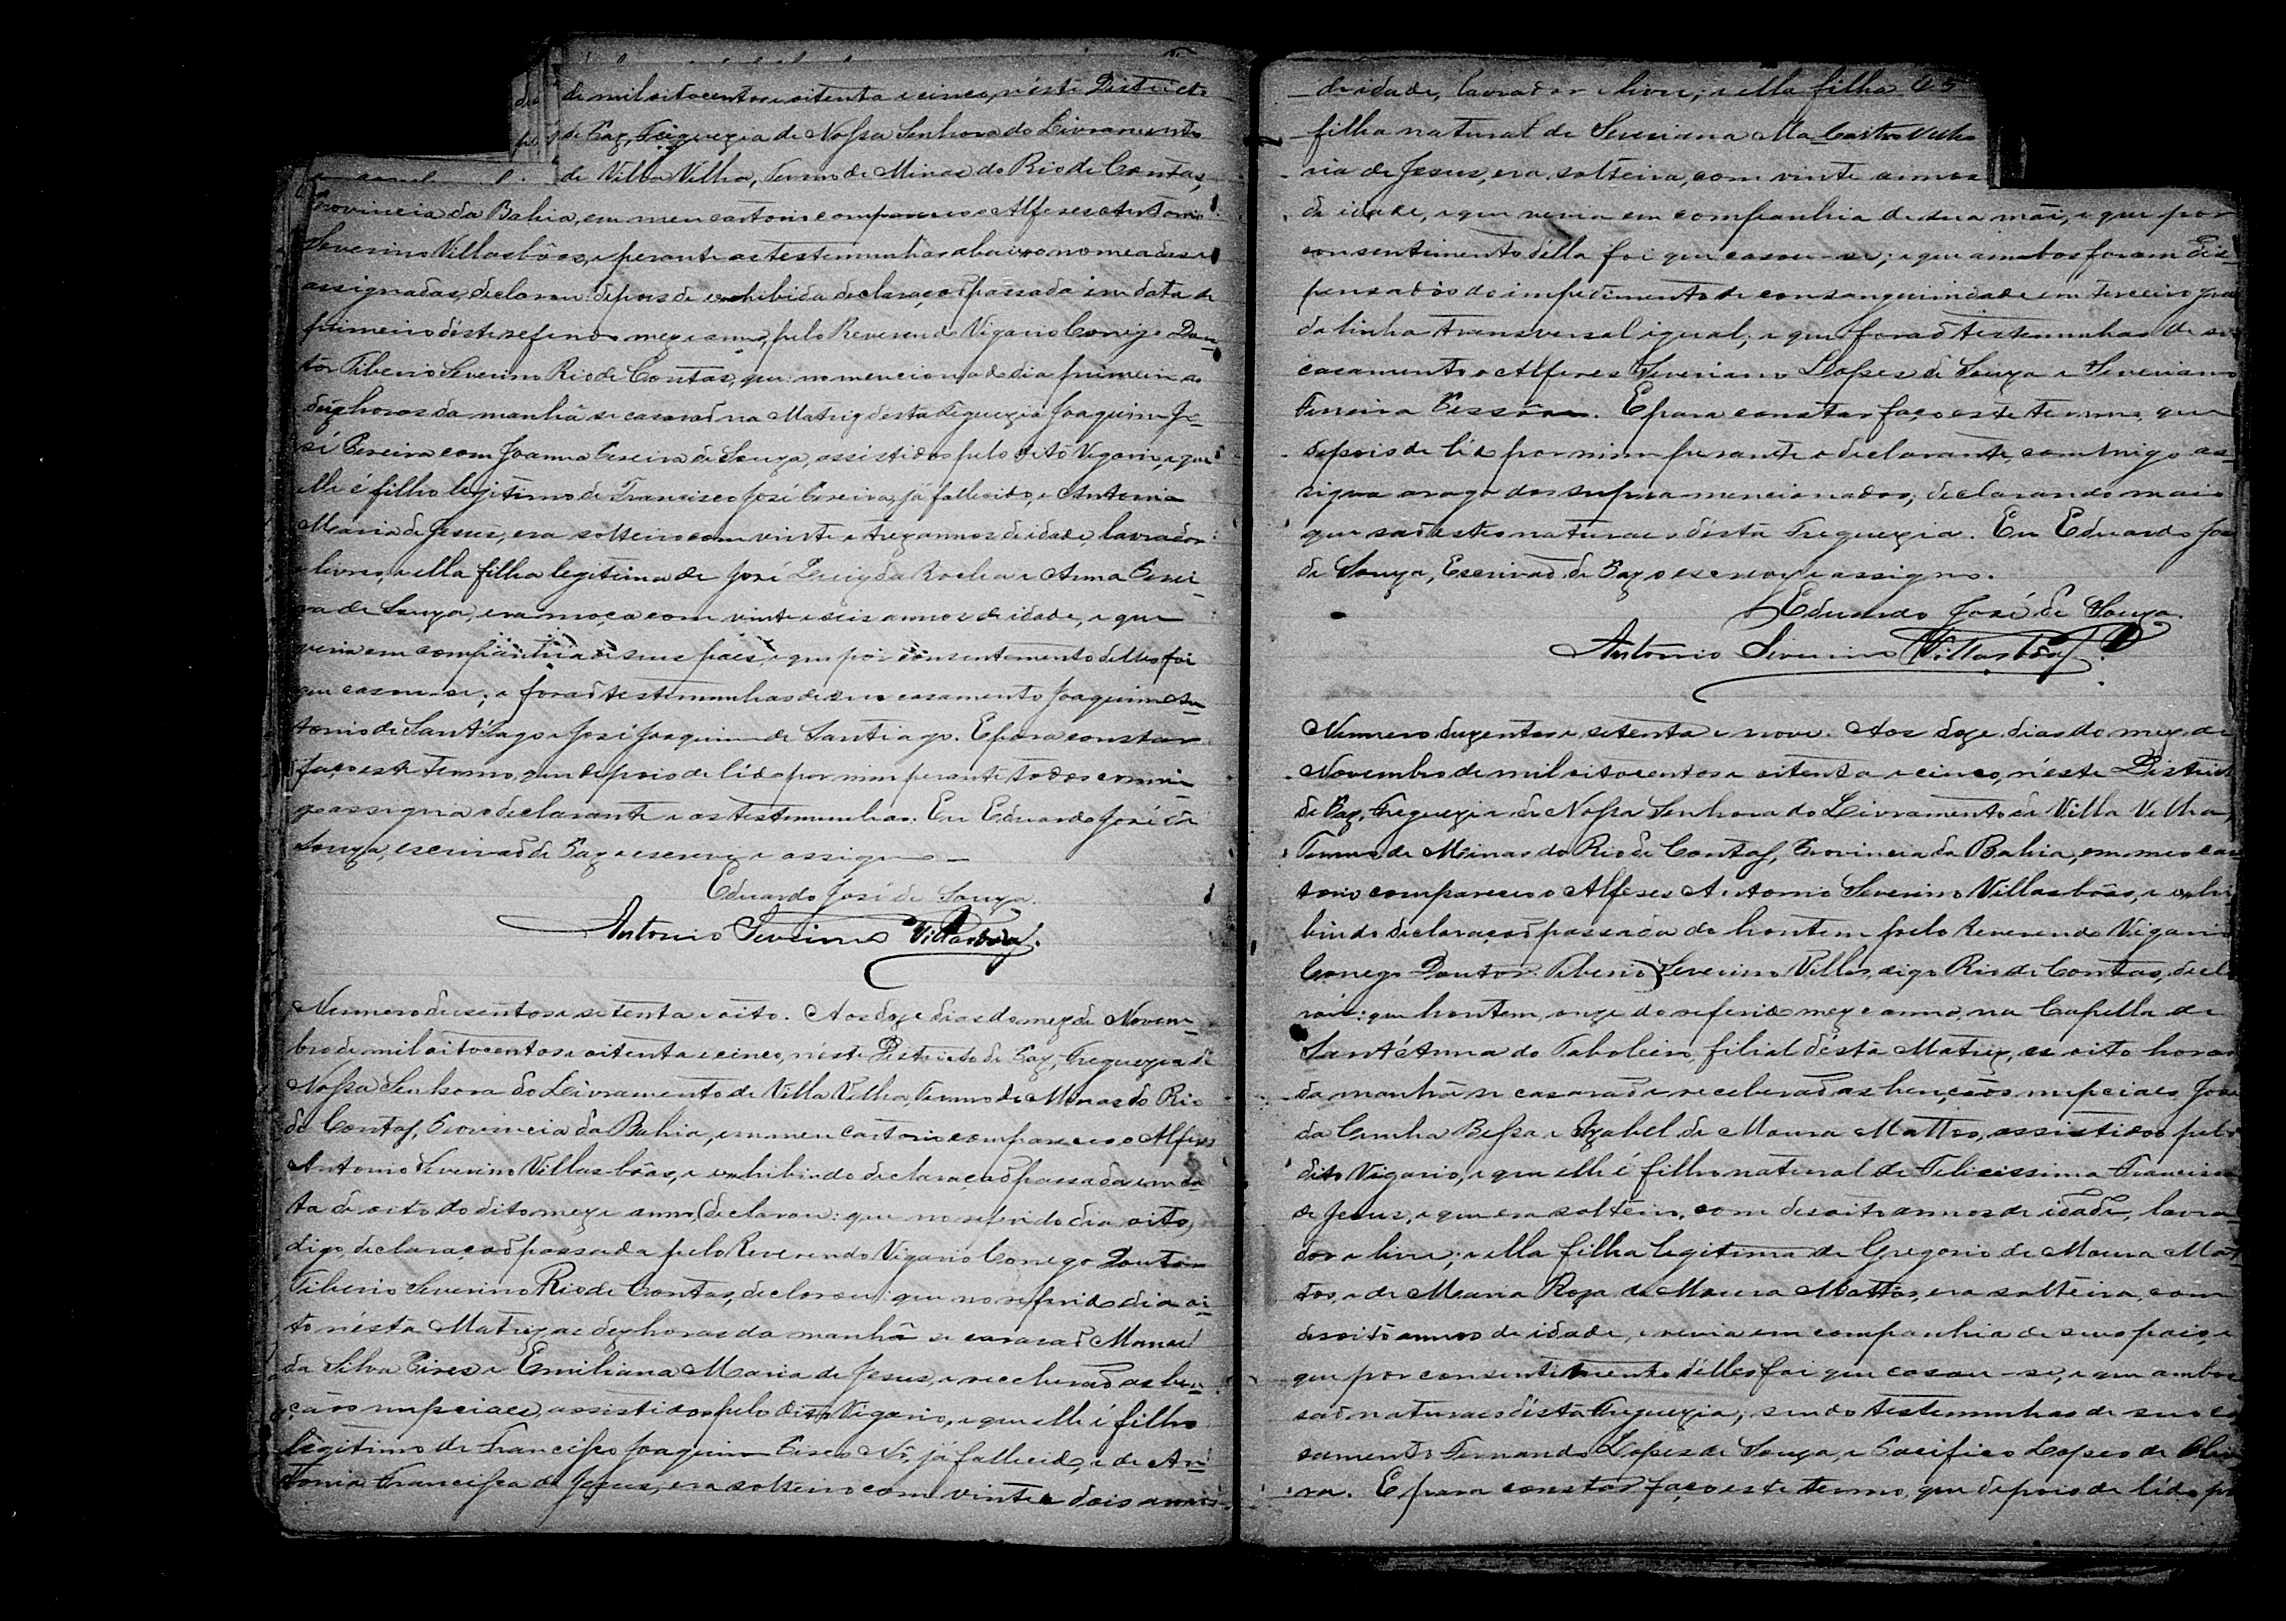 de mil oitocentos e oitenta e cinco, n'éste Districto
de Paz, Freguezia de Nossa Senhora do Livramento
de Villa Velha, Termo de Minas do Rio de Contas,
Provincia da Bahia, em meu cartorio compareceo o Alferes Antonio
Severino Villasbôas, e perante as testemunhas abaixo nomeadas e
assignadas, declarou: depois de exhibida declaração passada em data de
primeiro d'este referido mez e anno, pelo Reverendo Vigario Conego Dou-
tor Tiberio Severino Rio de Contas, que no mencionado dia primeiro as
déz horas da manhã se casarão na Matriz desta Freguezia Joaquim Jo-
sé Pereira com Joanna Pereira de Souza, assistidos pelo dito Vigario, e que
elle é filho legitimo de Francisco José Pereira, já fallecido, e Antonia
Maria de Jesus, era solteiro com vinte e trez annos de idade, lavrador
e livre, e ella filha legitima de José Luiz da Rocha e Anna Perei-
ra de Souza, era moça com vinte e seis annos de idade, e que
vivia em companhia de seus paes, e que por consentimento delles foi
que casou-se; e forão testemunhas de seu casamento Joaquim An-
tonio de Sant'Iago e José Joaquim de Santiago. E para constar
faço este termo, que depois de lido por mim perante todos commi-
go assigna o declarante e as testemunhas. Eu Eduardo José de
Souza, escrivão de Paz o escrevi e assigno
Eduardo José de Souza.
Antonio Severino Villasbôas.
Numero dusentos e setenta e oito. Aos doze dias do mez de Novem-
bro de mil oitocentos e oitenta e cinco, n'éste Districto de Paz, Freguezia de
Nossa Senhora do Livramento de Villa Velha, Termo de Minas do Rio
de Contas, Provincia da Bahia, em meu cartorio compareceo o Alferes
Antonio Severino Villasbôas, e exhibindo declaração passada em da-
ta de oito do dito mez e anno, declarou: que no referido dia oito,
digo, declaração passada pelo Reverendo Vigario Conego Doutor
Tiberio Severino Rio de Contas, declarou: que no referido dia oi-
to n'ésta Matriz as dez horas da manhã se casarão Manoel
da Silva Pires e Emiliana Maria de Jesus, e receberão as ben-
çãos nupciaes, assistidos pelo dito Vigario, e que elle é filho
legitimo de Francisco Joaquim Pires Nô, já fallecido, e de An-
tonia Francisca de Jesus, era solteiro com vinte e dois annos
de idade, lavrador e livre; e ella filha 05
filha natural de Severiana Ma- Castro Velho
ria de Jesus, era solteira, com vinte annos
de idade, e que vivia em companhia de sua mãi, e que por
consentimento d'élla foi que casou-se; e que ambos foram dis-
pensados do impedimento de consanguinidade em terceiro grau
da linha transversal igual; e que forão testemunhas de seu
casamento o Alferes Severiano Lopes de Souza e Severiano
Ferreira Pessôa. E para constar faço este termo, que
depois de lido por mim perante o declarante, commigo as-
signa a rogo dos supra mencionados, declarando mais
que são estes naturaes d'ésta Freguezia. Eu Eduardo José
de Souza, Escrivão de Paz o escrevy e assigno.
Eduardo José de Souza.
Antonio Severino Villasbôas.
Numero duzentos e setenta e nove. Aos doze dias do mez de
Novembro de mil oitocentos e oitenta e cinco, n'éste Districto
de Paz, Freguezia de Nossa Senhora do Livramento de Villa Velha,
Termo de Minas do Rio de Contas, Provincia da Bahia, em meo car
torio compareceo o Alferes Antonio Severino Villasbôas, e exhi
bindo declaração passada de hontem pelo Reverendo Vigario
Conego Doutor Tiberio Severino Villas, digo Rio de Contas, decla
rou: que hontem, onze do referido mez e anno, na Capella de
Sant'Anna do Taboleiro, filial d'ésta Matriz, as oito horas
da manhã se casarão e receberão as bençãos nupciaes José
da Cunha Bessa e Izabel de Moura Mattos, assistidos pelo
dito Vigario, e que elle é filho natural de Felicissima Francisca
de Jesus, e que era solteiro, com desoito annos de idade, lavra-
dor e livre; e ella filha legitima de Gregorio de Moura Mat
tos, e de Maria Roza de Moura Mattos, era solteira, com
desoito annos de idade, e vivia em companhia de seus paes, e
que por consentimento d'élles foi que casou-se, e que ambos
são naturaes d'ésta Freguezia; sendo testemunhas de seu ca
samento Fernando Lopes de Souza, e Pacifico Lopes de Olivei
ra. E para constar faço este termo, que depois de lido por